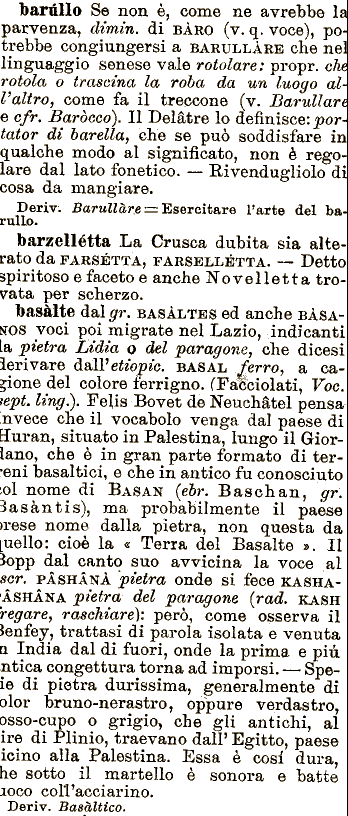 barúllo Se non è, come ne avrebbe la
parvenza, dimin. di BÀRO (v. q. voce), po-
trebbe congiungersi a BARULLÀRE che nel
linguaggio senese vale rotolare: propr. che
rotola o trascina la roba da un luogo al-
l'altro, come fa il treccone (v. Barullare
e cfr. Baròcco). Il Delâtre lo definisce: por-
tator di barella, che se può soddisfare in
qualche modo al significato, non è rego-
lare dal lato fonetico. — Rivendugliolo di
cosa da mangiare.
Deriv. Barullàre = Esercitare l'arte del ba-
rullo.
barzellétta La Crusca dubita sia alte-
rato da FARSÉTTA, FARSELLÉTTA. — Detto
spiritoso e faceto e anche Novelletta tro-
vata per scherzo.
basàlte dal gr. BASÀLTES ed anche BÀSA-
NOS voci poi migrate nel Lazio, indicanti
la pietra Lidia o del paragone, che dicesi
derivare dall'etiopic. BASAL ferro, a ca-
gione del colore ferrigno. (Facciolati, Voc.
sept. ling.). Felis Bovet de Neuchâtel pensa
invece che il vocabolo venga dal paese di
Huran, situato in Palestina, lungo il Gior-
dano, che è in gran parte formato di ter-
reni basaltici, e che in antico fu conosciuto
col nome di BASAN (ebr. Baschan, gr.
Basàntis), ma probabilmente il paese
prese nome dalla pietra, non questa da
quello: cioè la « Terra del Basalte ». Il
Bopp dal canto suo avvicina la voce al
scr. PÂSHÂNÀ pietra onde si fece KASHA-
PÂSHÂNA pietra del paragone (rad. KASH
fregare, raschiare): però, come osserva il
Benfey, trattasi di parola isolata e venuta
in India dal di fuori, onde la prima e piú
antica congettura torna ad imporsi. — Spe-
cie di pietra durissima, generalmente di
color bruno-nerastro, oppure verdastro,
rosso-cupo o grigio, che gli antichi, al
dire di Plinio, traevano dall'Egitto, paese
vicino alla Palestina. Essa è cosí dura,
che sotto il martello è sonora e batte
fuoco coll'acciarino.
Deriv. Basàltico.